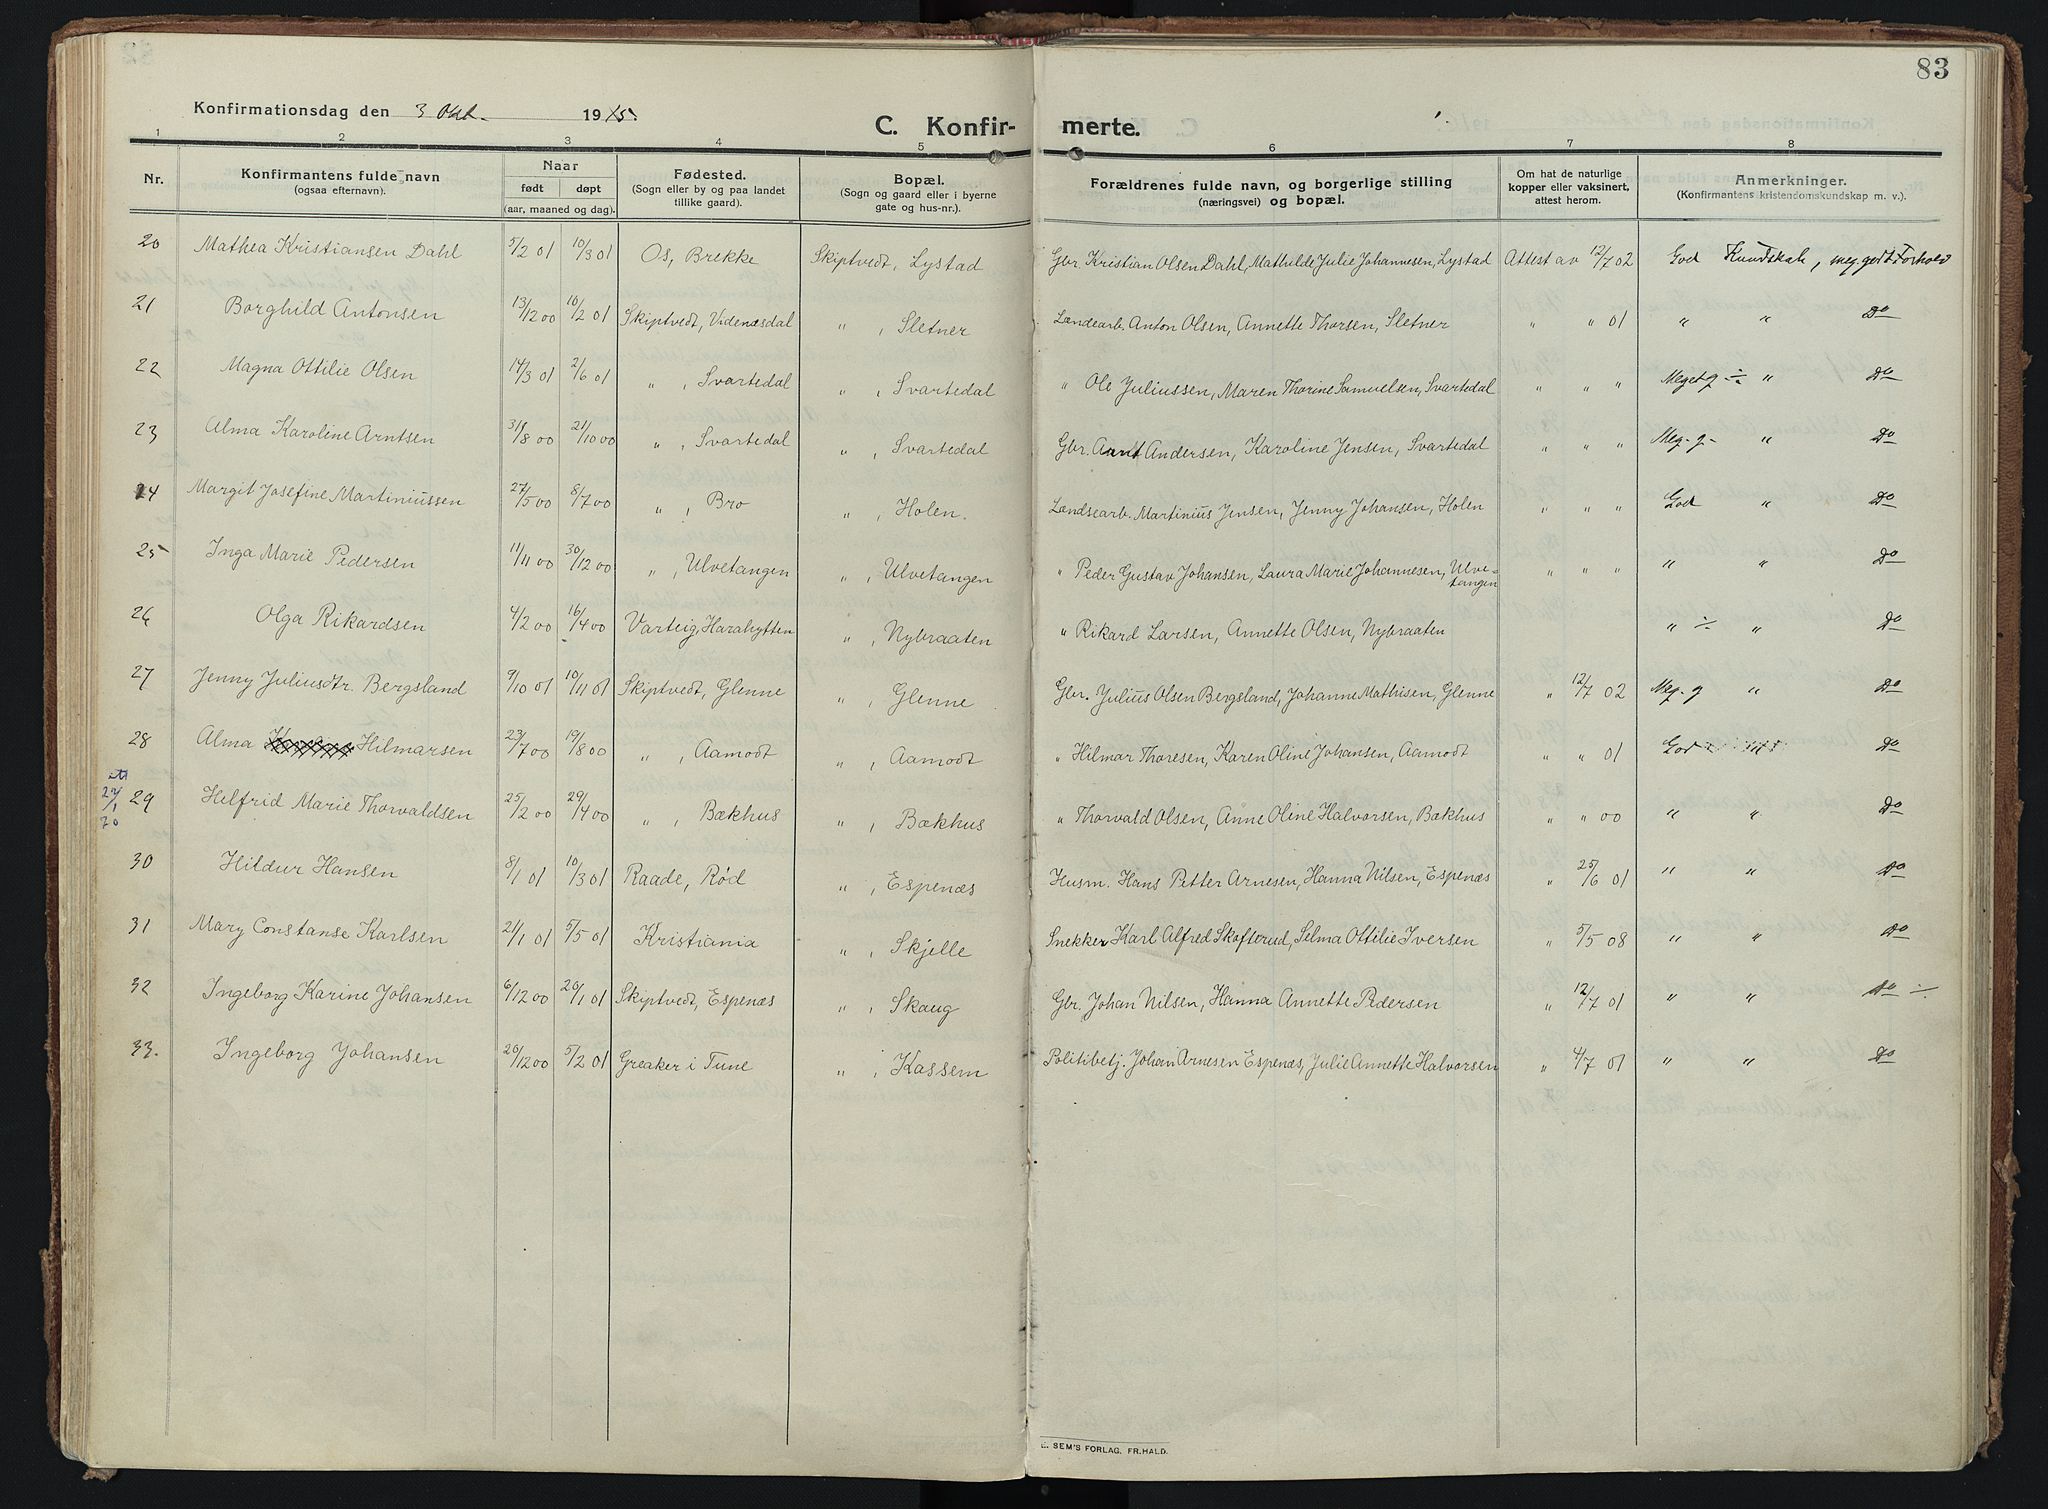 83
Konfirmationsdag den 3 Okt. 1915.
C. Konfir- merte.
1 2 3 4 5 6 7 8
Nr.
Konfirmantens fulde navn
(ogsaa efternavn).
Naar
født døpt
(aar, maaned og dag).
Fødested.
(Sogn eller by og paa landet
tillike gaard).
Bopæl.
(Sogn og gaard eller i byerne
gate og hus-nr.).
Forældrenes fulde navn, og borgerlige stilling
(næringsvei) og bopæl.
Om hat de naturlige
kopper eller vaksinert,
attest herom.
Anmerkninger.
(Konfirmantens kristendomskundskap m. v.).
20 Mathea Kristiansen Dahl 5/2 01 10/3 01 Os, Brekke Skiptvedt, Lystad Gbr. Kristian Olsen Dahl, Mathilde Julie Johannesen, Lystad Attest av 12/7 02 God Kundskab, meg. godt Forhold
21 Borghild Antonsen 13/12 00 10/2 01 Skiptvedt, Videnæsdal " , Sletner Landearb. Anton Olsen, Annette Thorsen, Sletner " " 01 " " Do
22 Magna Ottilie Olsen 14/3 01 2/6 01 " , Svartedal " , Svartedal " Ole Juliussen, Maren Thorine Samuelsen, Svartedal " " " Meget g ÷ " Do
23 Alma Karoline Arntsen 31/8 00 21/10 00 " , Svartedal " , Svartedal Gbr. Arnt Andersen, Karoline Jensen, Svartedal " " " Meg. g- " Do
24 Margit Josefine Martiniussen 27/5 00 8/7 00 " , Bro " , Holen. Landsearb. Martinius Jensen, Jenny Johansen, Holen " " " God " Do
25 Inga Marie Pedersen 11/11 00 30/12 00 " , Ulvetangen " , Ulvetangen " Peder Gustav Johansen, Laura Marie Johannesen, Ulve-
tangen " " " " " Do
26 Olga Rikardsen 4/2 00 16/4 00 Varteig, Harahytten " , Nybraaten " Rikard Larsen, Annette Olsen, Nybraaten " ÷ " Do
27 Jenny Juliusdtr. Bergsland 9/10 01 10/11 01 Skiptvedt, Glenne " , Glenne Gbr. Julius Olsen Bergsland, Johanne Mathisen, Glenne " 12/7 02 Meg. g " Do
28 Alma Hilmarsen 23/7 00 19/8 00 " , Aamodt " , Aamodt " Hilmar Thoresen, Karen Oline Johansen, Aamodt " " 01 God Do
29 Helfrid Marie Thorvaldsen 25/2 00 29/4 00 " , Bækhus " , Bækhus " Thorvald Olsen, Anne Oline Halvorsen, Bækhus " " 00 " " Do
30 Hildur Hansen 8/1 01 10/3 01 Raade, Rød " , Espenæs Husm. Hans Petter Arnesen, Hanna Nilsen, Espenæs " 25/6 01 " " Do
31 Mary Constanse Karlsen 21/1 01 5/5 01 Kristiania " , Skjelle Snekker Karl Alfred Skofterud, Selma Ottilie Iversen " 5/5 08 " " Do
32 Ingeborg Karine Johansen 6/12 00 20/1 01 Skiptvedt, Espenæs " , Skaug Gbr. Johan Nilsen, Hanna Annette Pedersen " 12/7 01 " " Do ÷
33. Ingeborg Johansen 26/12 00 5/2 01 Greaker i Tune " , Kassem Politibetj. Johan Arnesen Espenæs, Julie Annette Halvorsen " 4/7 01 " " Do
E. SEM'S FORLAG, FR.HALD.